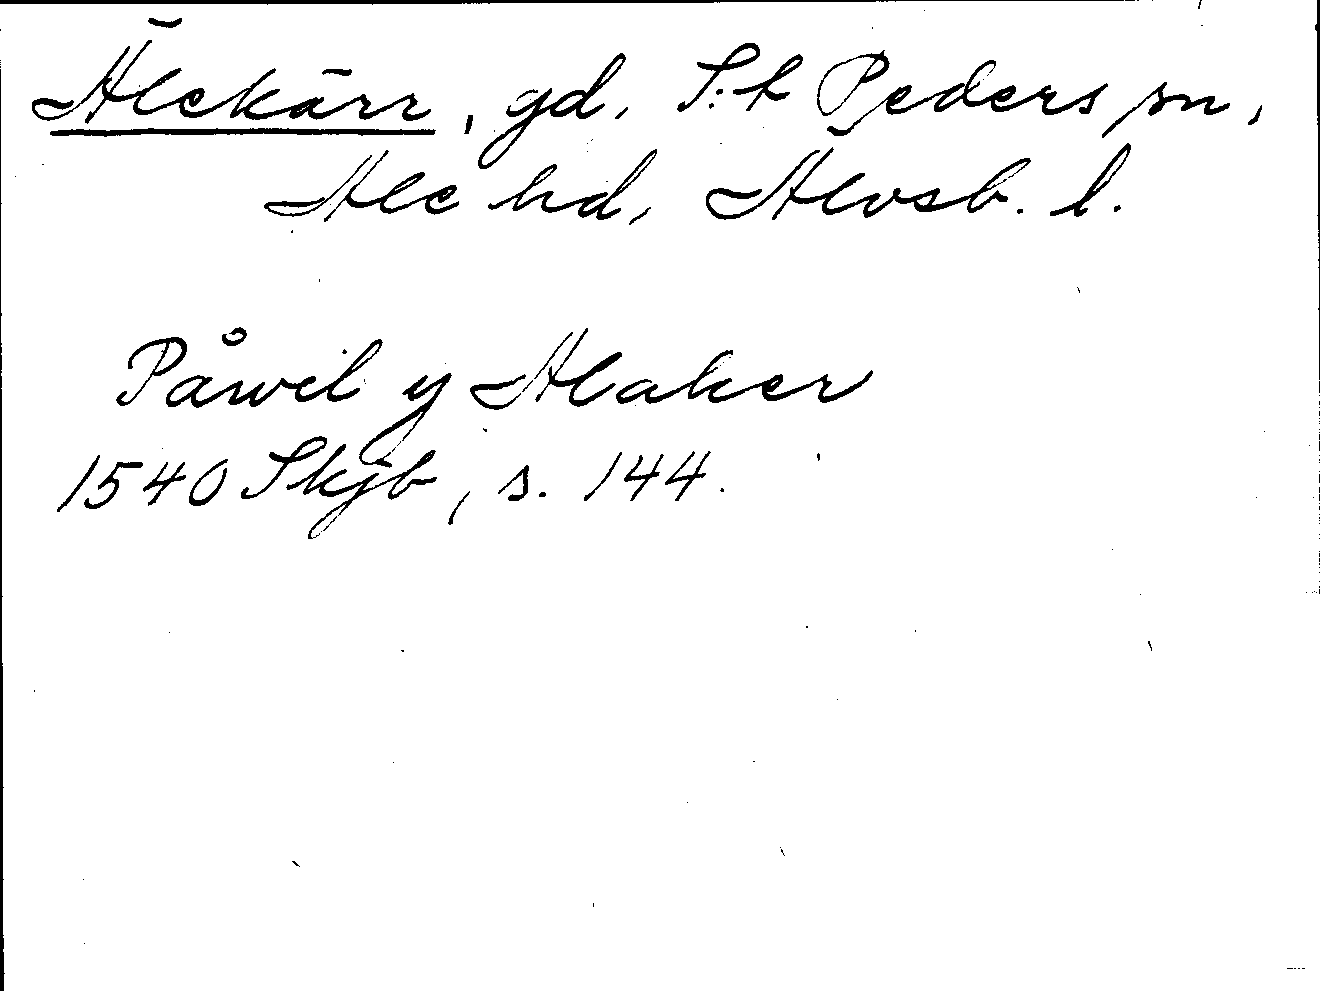 Älekärr, gd, S:t Peders sn,
Ale hd, Älvsb. l.
Påwel y Alaker
1540 Skjb, s. 144.